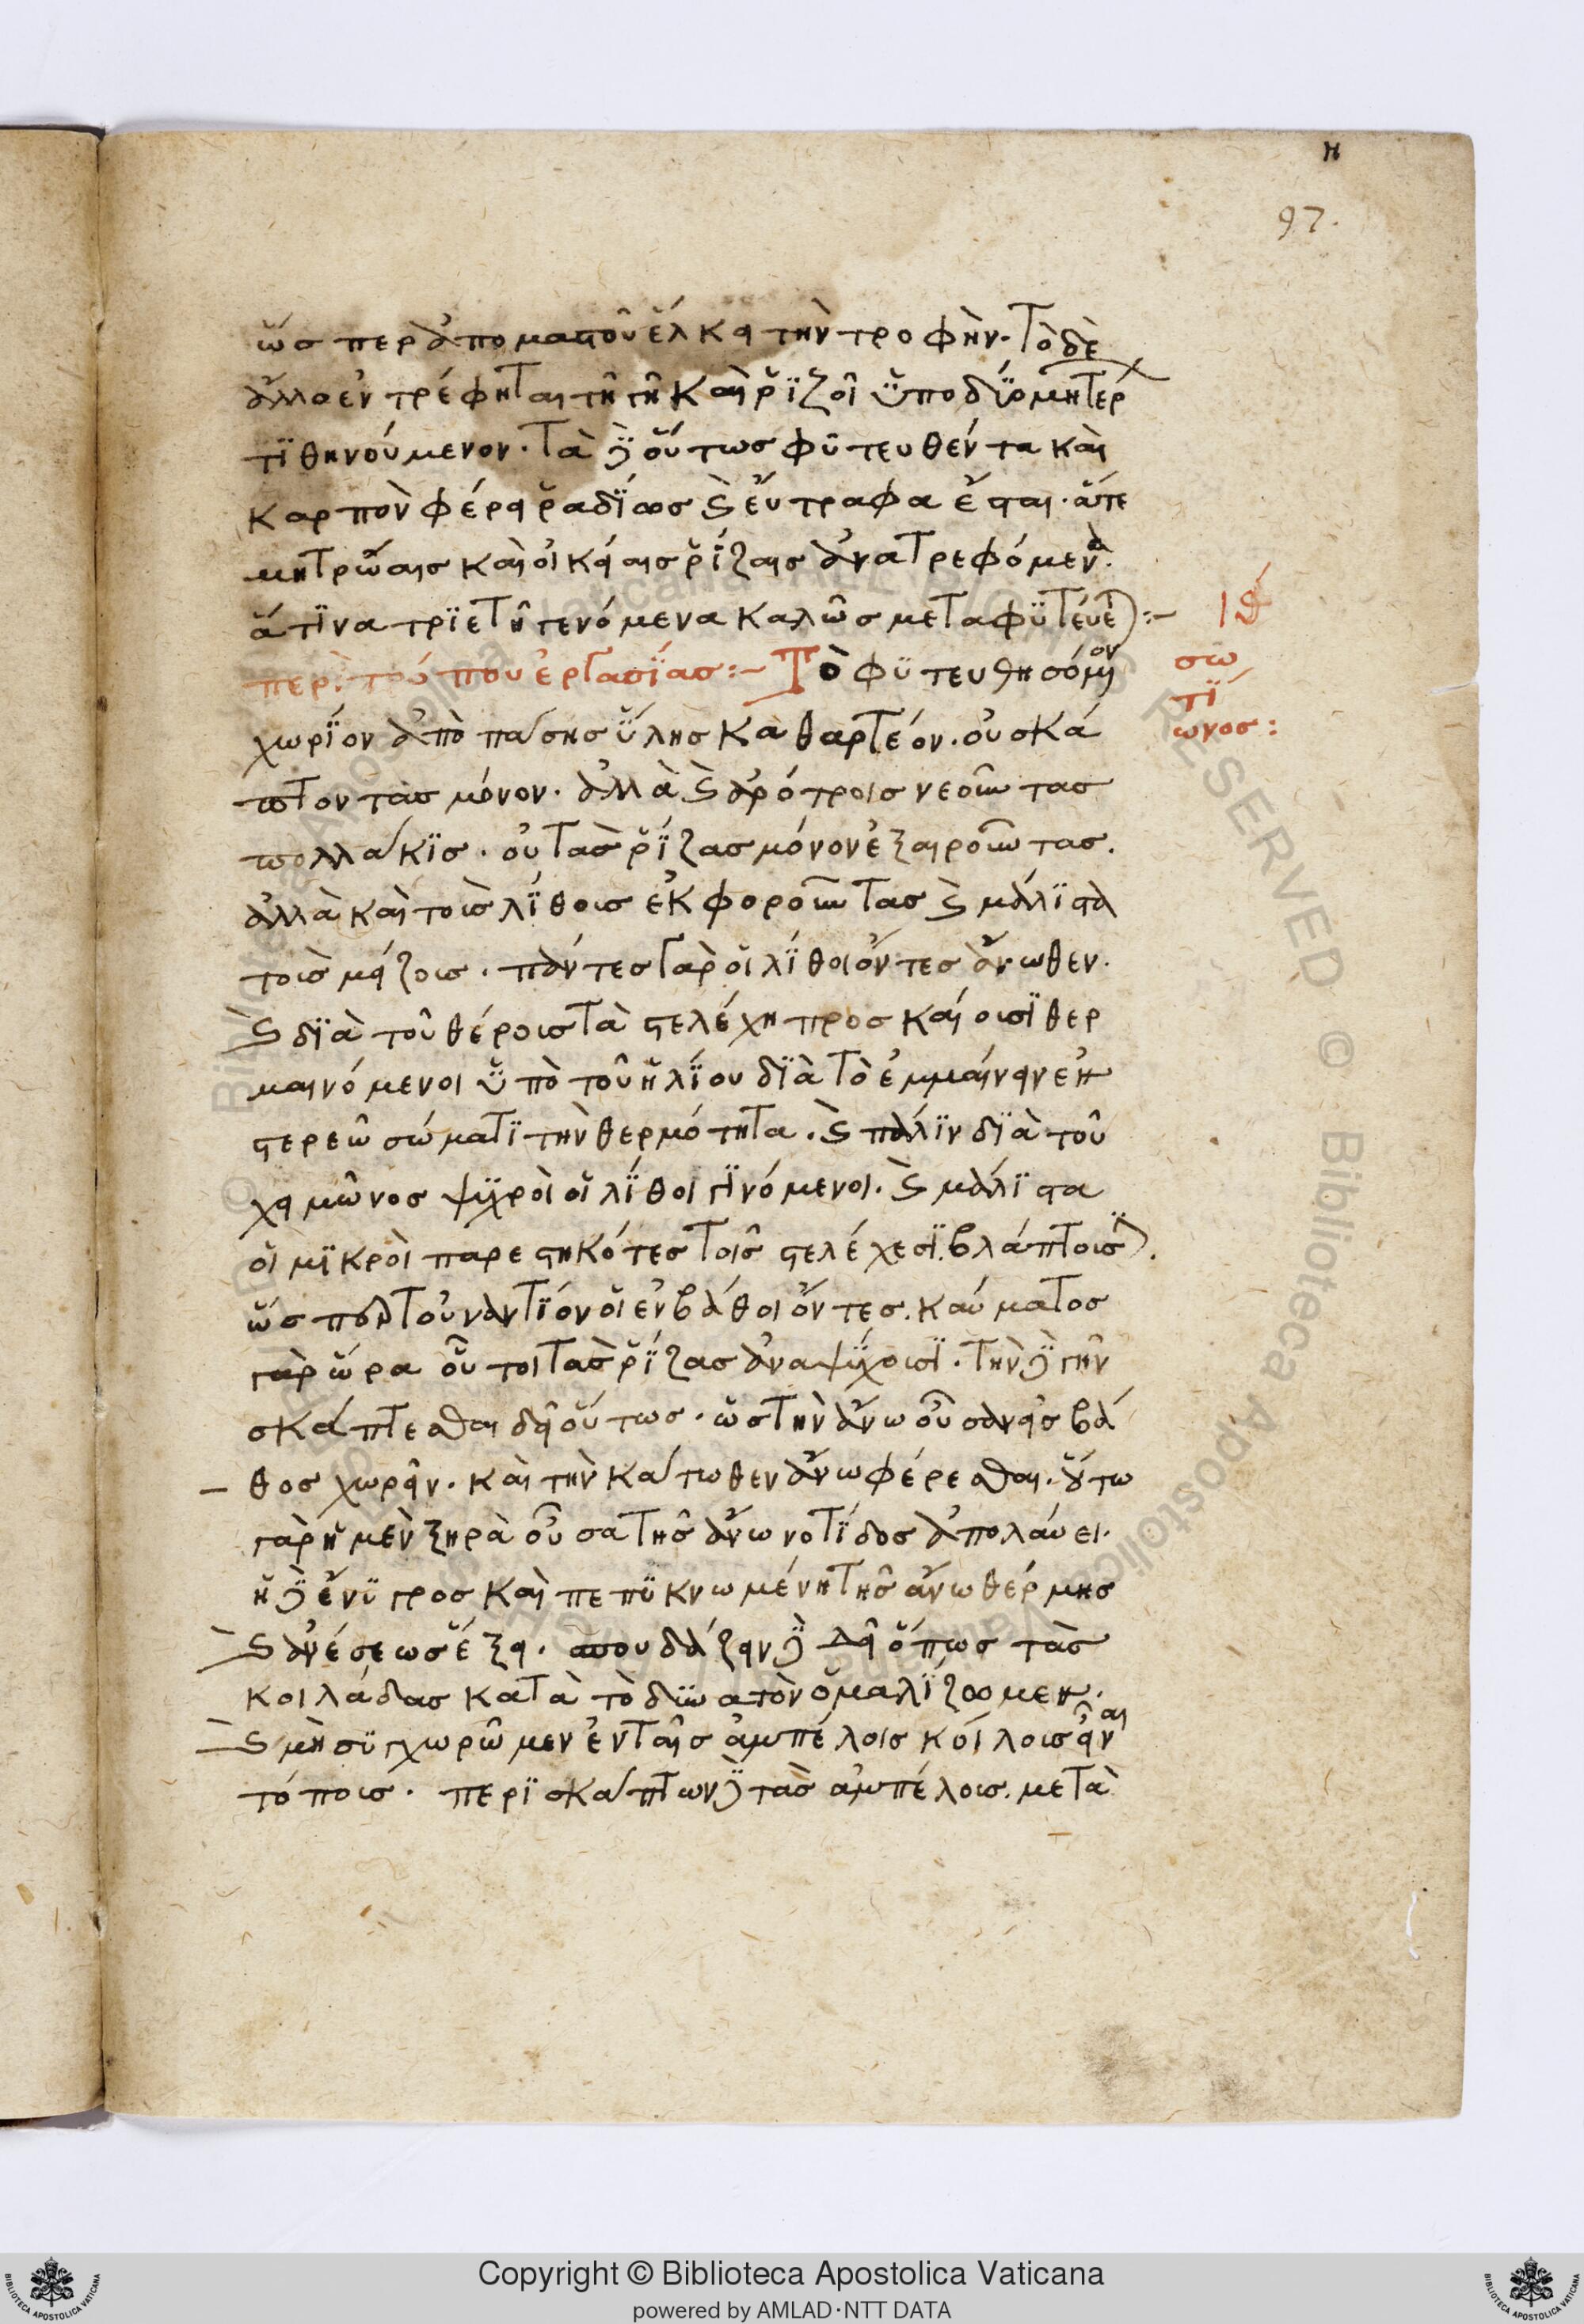 η
97.
ὥσπερ ἀπὸ μαστοῦ ἕλκει τὴν τροφήν. Τὸ δὲ
ἄλλο ἐντρέφηται τῆ γῆ καὶ ῥιζοῖ ὑπὸ δύο μητέρ
τιθηνούμενον. Τὰ δὲ οὕτως φυτευθέντα καὶ
καρπὸν φέρει ῥαδίως καὶ εὔτραφα ἔσται. ἅτε
μητρώαις καὶ οἰκείαις ῥίζαις ἀνατρεφόμενα.
ἅτινα τριετῆ γενόμενα καλῶς μεταφυτεύετ(αι):-
ιθ
περὶ τόπου ἐργασίας:- Τὸ φυτευθησόμενον
σω
τί
ωνος:
χωρίον ἀπὸ πάσης ὕλης καθαρτέον. οὐ σκά
πτοντας μόνον. ἀλλὰ καὶ ἀρότροις νεοῦντας
πολλάκις. οὐ τὰς ῥίζας μόνον ἐξαιροῦντας.
ἀλλὰ καὶ τοὺς λίθους ἐκφοροῦντας καὶ μάλιστα
τοὺς μείζους. πάντες γὰρ οἱ λίθοι ὄντες ἄνωθεν.
καὶ διὰ τοῦ θέρους τὰ στελέχη προσκαίουσι θερ
μαινόμενοι ὑπὸ τοῦ ἡλίου διὰ τὸ ἐμμαίνειν ἐν
στερεῶ σώματι τὴν θερμότητα. καὶ πάλιν διὰ τοῦ
χειμῶνος ψυχροὶ οἱ λίθοι γινόμενοι. καὶ μάλιστα
οἱ μικροὶ παρεστηκότες τοῖς στελέχεσι. βλάπτουσιν.
ὥσπερ τοὐναντίον οἱ ἐν βάθοι ὄντες. καύματος
γὰρ ὥρα οὗτοι τὰς ῥίζας ἀναψύχουσι. Τὴν δὲ γῆν
σκάπτεσθαι δεῖ οὕτως. ὡς τὴν ἄνω οὖσαν εἰς βά
θος χωρεῖν. καὶ τὴν κάτωθεν ἄνω φέρεσθαι. οὕτω
γὰρ ἡ μὲν ξηρὰ οὖσα τῆς ἄνω νοτίδος ἀπολαύει.
ἡ δὲ ἔνυγρος καὶ πεπυκνωμένη τῆς ἄνω θέρμης
καὶ ἀνέσεως ἕξει. σπουδάζειν δὲ δεῖ ὅπως τὰς
κοιλάδας κατὰ τὸ δυνατὸν ὁμαλίζωμεν.
καὶ μὴ συγχωρῶμεν ἐν ταῖς ἀμπέλοις κοίλους εἶναι
τόπους. περισκάπτων δὲ τὰς ἀμπέλους. μετὰ
Copyright © Biblioteca Apostolica Vaticana
powered by AMLAD·NTT DATA